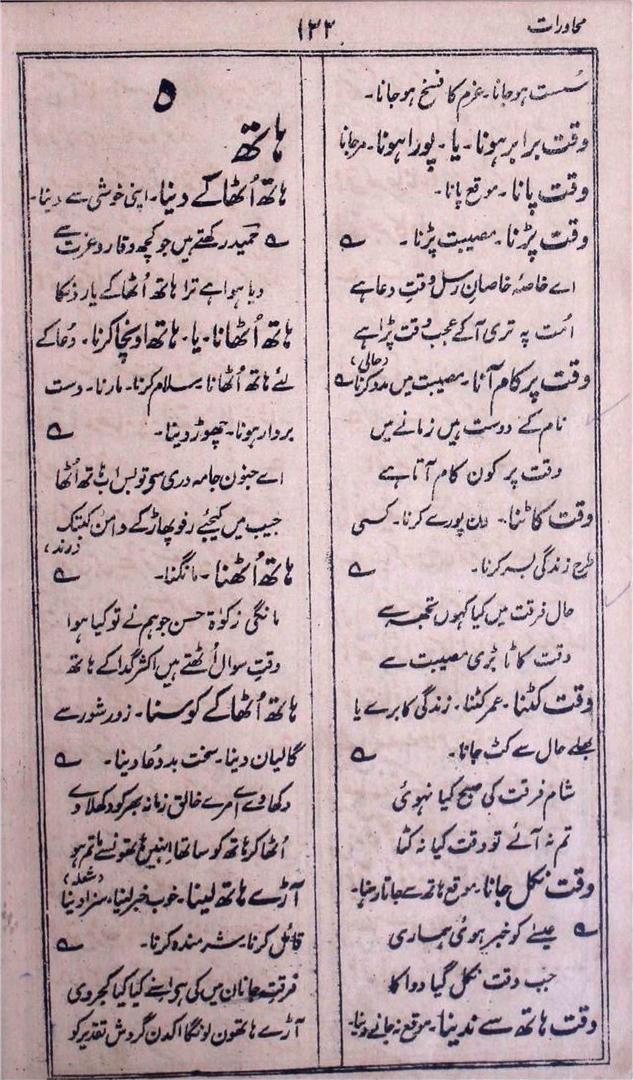 محاورات
۱۳۲
سُست ہوجانا۔ عزم کا فسخ ہوجانا۔
وقت برابر ہونا۔ یا۔ پورا ہونا۔ مرجانا
وقت پانا۔ موقع پانا۔
وقت پڑنا۔ مصیبت پڑنا۔ ؎
اے خاصۂ خاصانِ رسل وقتِ دعا ہے
اُمت پہ تری آکے عجب وقت پڑا ہے
(حالی)
وقت پر کام آنا۔ مصیبت میں مدد کرنا ؎
نام کے دوست ہیں زمانے میں
وقت پر کون کام آتا ہے
وقت کاٹنا۔ دن پورے کرنا۔ کسی
طرح زندگی بسر کرنا۔ ؎
حال فرقت میں کیا کہوں تجھ سے
وقت کاٹا بڑی مصیبت سے
وقت کٹنا۔ عمر کٹنا۔ زندگی کا برے یا
بھلے حال سے کٹ جانا۔ ؎
شام فرقت کی صبح کیا نہوئی
تم نہ آئے تو وقت کیا نہ کٹا
وقت نکل جانا۔ موقع ہاتھ سے جاتا رہنا۔
؎ عیسےٰ کو خبر ہوئی ہماری
جب وقت نکل گیا دوا کا
وقت ہاتھ سے ندینا۔ موقع نہ جانے دینا۔
ہ
ہاتھ
ہاتھ اُٹھا کے دینا۔ اپنی خوشی سے دینا۔
؎ حمید رکھتے ہیں جو کچھ وقار و عزت سے
دیا ہوا ہے ترا ہاتھ اُٹھا کے یارذکا
ہاتھ اُٹھانا۔ یا۔ ہاتھ اونچا کرنا۔ دُعا کے
لئے ہاتھ اُٹھانا۔ سلام کرنا۔ مارنا۔ دست
بردار ہونا۔ چھوڑ دینا۔ ؎
اے جنون جامہ دری ہی تو بس اب ہاتھ اُٹھا
جیب میں کیجئے رفو پھاڑ کے دامن کبتک
(رند)
ہاتھ اُٹھنا۔ مانگنا۔ ؎
مانگی زکوٰۃ حسن جو ہم نے تو کیا ہوا
وقت سوال اُٹھتے ہیں اکثر گدا کے ہاتھ
ہاتھ اُٹھا کے کوسنا۔ زور شور سے
گالیان دینا۔ سخت بددُعا دینا۔ ؎
دکھاوے اے مرے خالق زمانہ بھر کو دکھلا دے
اُٹھا کر ہاتھ کو ساتھا انہیں ہاتھوں سے ماتم ہو
(شعلہ)
آڑے ہاتھ لینا۔ خوب خبر لینا۔ سزا دینا
قائل کرنا۔ شرمندہ کرنا۔ ؎
فرقتِ جانان میں کی ہی اسنے کیا کیا کجروی
آڑے ہاتھون لونگا اکدن گردش تقدیر کو